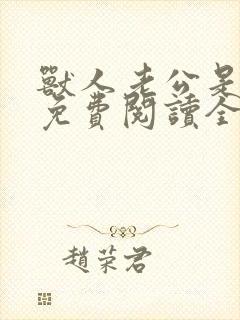 獸人老公是
免費閱讀全
趙荣君